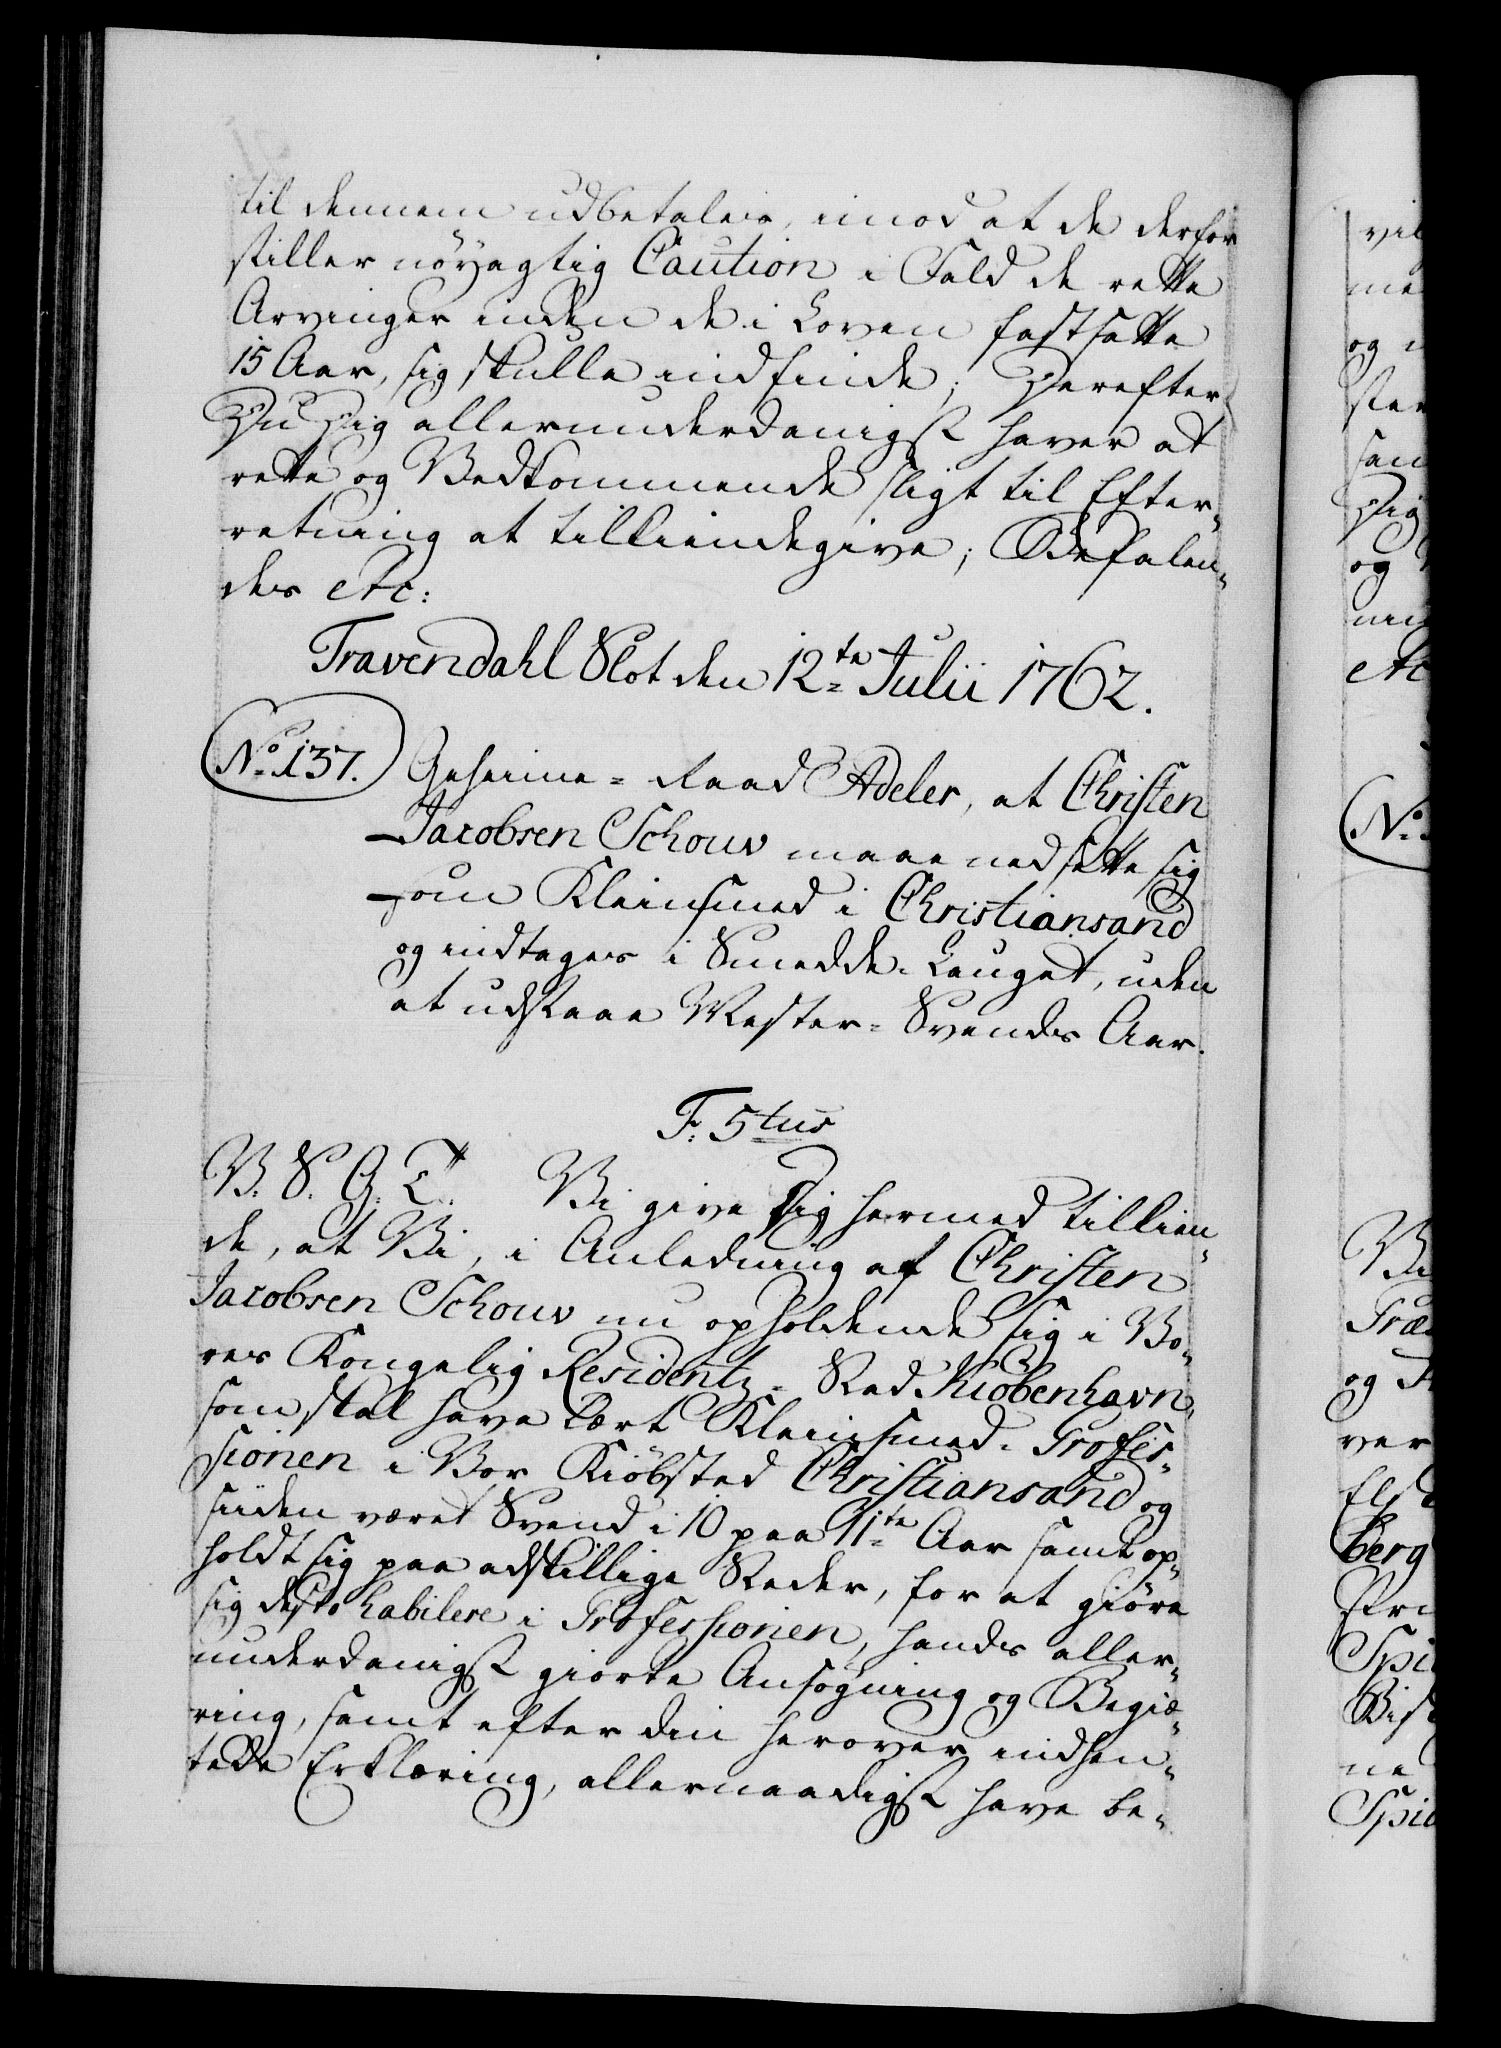 til dennem udbetales, imod at de derfor
stiller nöyagtig Caution i Fald de rette
Arvinger inden de i Loven fastsatte
15 Aar, sig skulle indfinde; Derefter
Du Dig allerunderdanigst haver at
rette og Vedkommende sligt til Efter-
retning at tilkiendegive; Befalen-
des etc:
Travendahl Slot den 12te Julii 1762.
No 137. Geheime-Raad Adeler, at Christen
Jacobsen Schouv maae nedsette sig
som Kleinsmed i Christiansand
og indtages i Smedde-Lauget, uden
at udstaae Mester-Svends Aar.
F. 5tus
V. S. G. T. Vi give Dig hermed tilkien-
de, at Vi, i Anledning af Christen
Jacobsen Schouv nu opholdende sig i Vo-
res Kongelig Residentz-Stad Kiöbenhavn,
som skal have lært Kleinsmed-Profes-
sionen i Vor Kiöbsted Christiansand og
siiden været Svend i 10 paa 11te Aar samt op-
holdt sig paa adskillige Steder, for at giöre
sig desto habilere i Professionen, hands aller-
underdanigst giorte Ansøgning og Begiæ-
ring, samt efter din herover indsen-
tede Erklæring, allernaadigst have be-
vil
me
og
ste
san
Dig
og
nin
etc
No
Vi
Træ
og
ver
Els
berg
Pri
Spi
Bis
ne
Spi